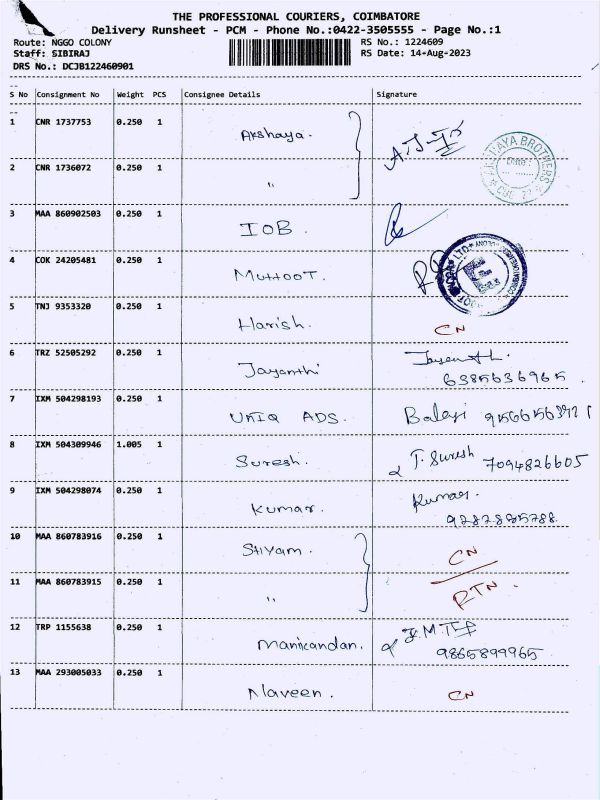 THE PROFESSIONAL COURIERS, COIMBATORE
Delivery Runsheet - PCM - Phone No.:0422-3505555 - Page No.:1
Route: NGGO COLONY RS No.: 1224609
Staff: SIBIRAJ RS Date: 14-Aug-2023
DRS No.: DCJB122460901
S No Consignment No Weight PCS Consignee Details Signature
1 CNR 1737753 0.250 1 Akshaya.
2 CNR 1736072 0.250 1 "
BROTHERS
Date:
3 MAA 860902503 0.250 1 IOB.
4 COK 24205481 0.250 1 MUTHOOT.
5 TNJ 9353320 0.250 1 Harish. CN
6 TRZ 52505292 0.250 1 Jayanthi
6385636965
7 IXM 504298193 0.250 1 UNIQ ADS. Balaji
8 IXM 504309946 1.005 1 Suresh. T. Suresh 7094826605
9 IXM 504298074 0.250 1 Kumar. Kumar.
10 MAA 860783916 0.250 1 CN
11 MAA 860783915 0.250 1 " RTN.
12 TRP 1155638 0.250 1 Manikandan.
9865899965
13 MAA 293005033 0.250 1 Naveen. CN